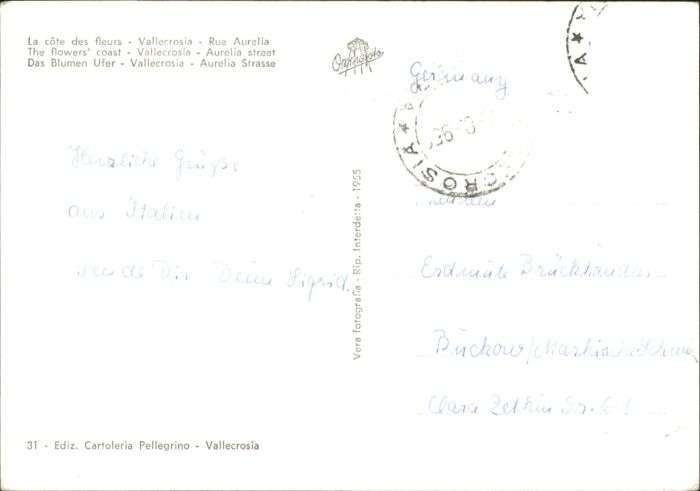 La côte des fleurs - Vallecrosia - Rue Aurelia
The flowers' coast - Vallecrosia - Aurelia street
Das Blumen Ufer - Vallecrosia - Aurelia Strasse
Germany
CROSIA
Herzliche Grüße
aus Italien
sende Dir Deine Sigrid.
Vera fotografia - Rip. Interdetta - 1955
Erdmute
Buckow/Märkische Schweiz
Clara Zetkin Str.
31 - Ediz. Cartoleria Pellegrino - Vallecrosia